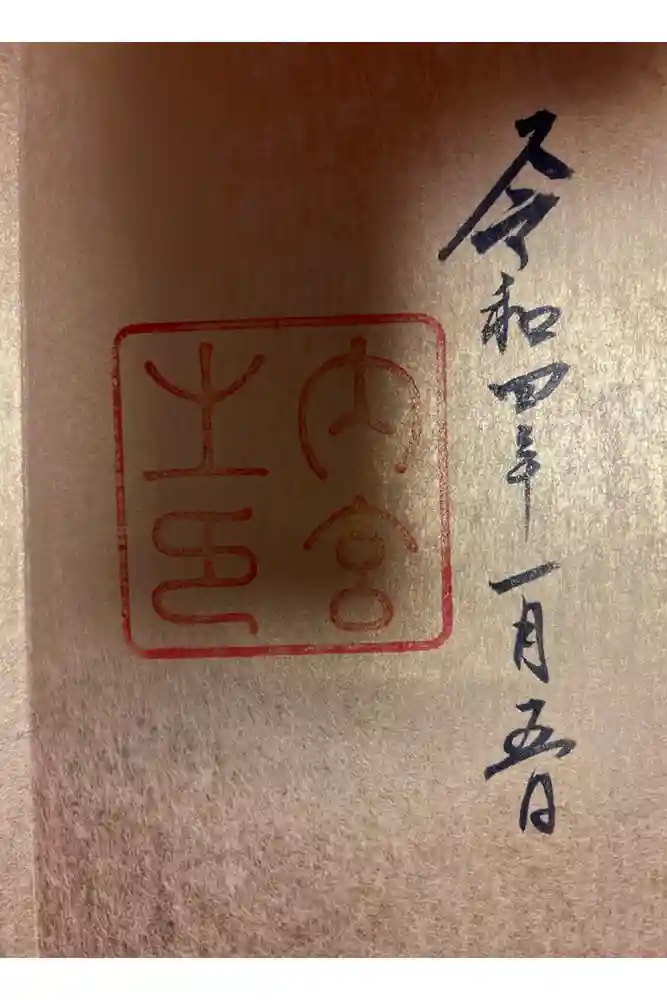 令和四年一月五日
内宮
之印